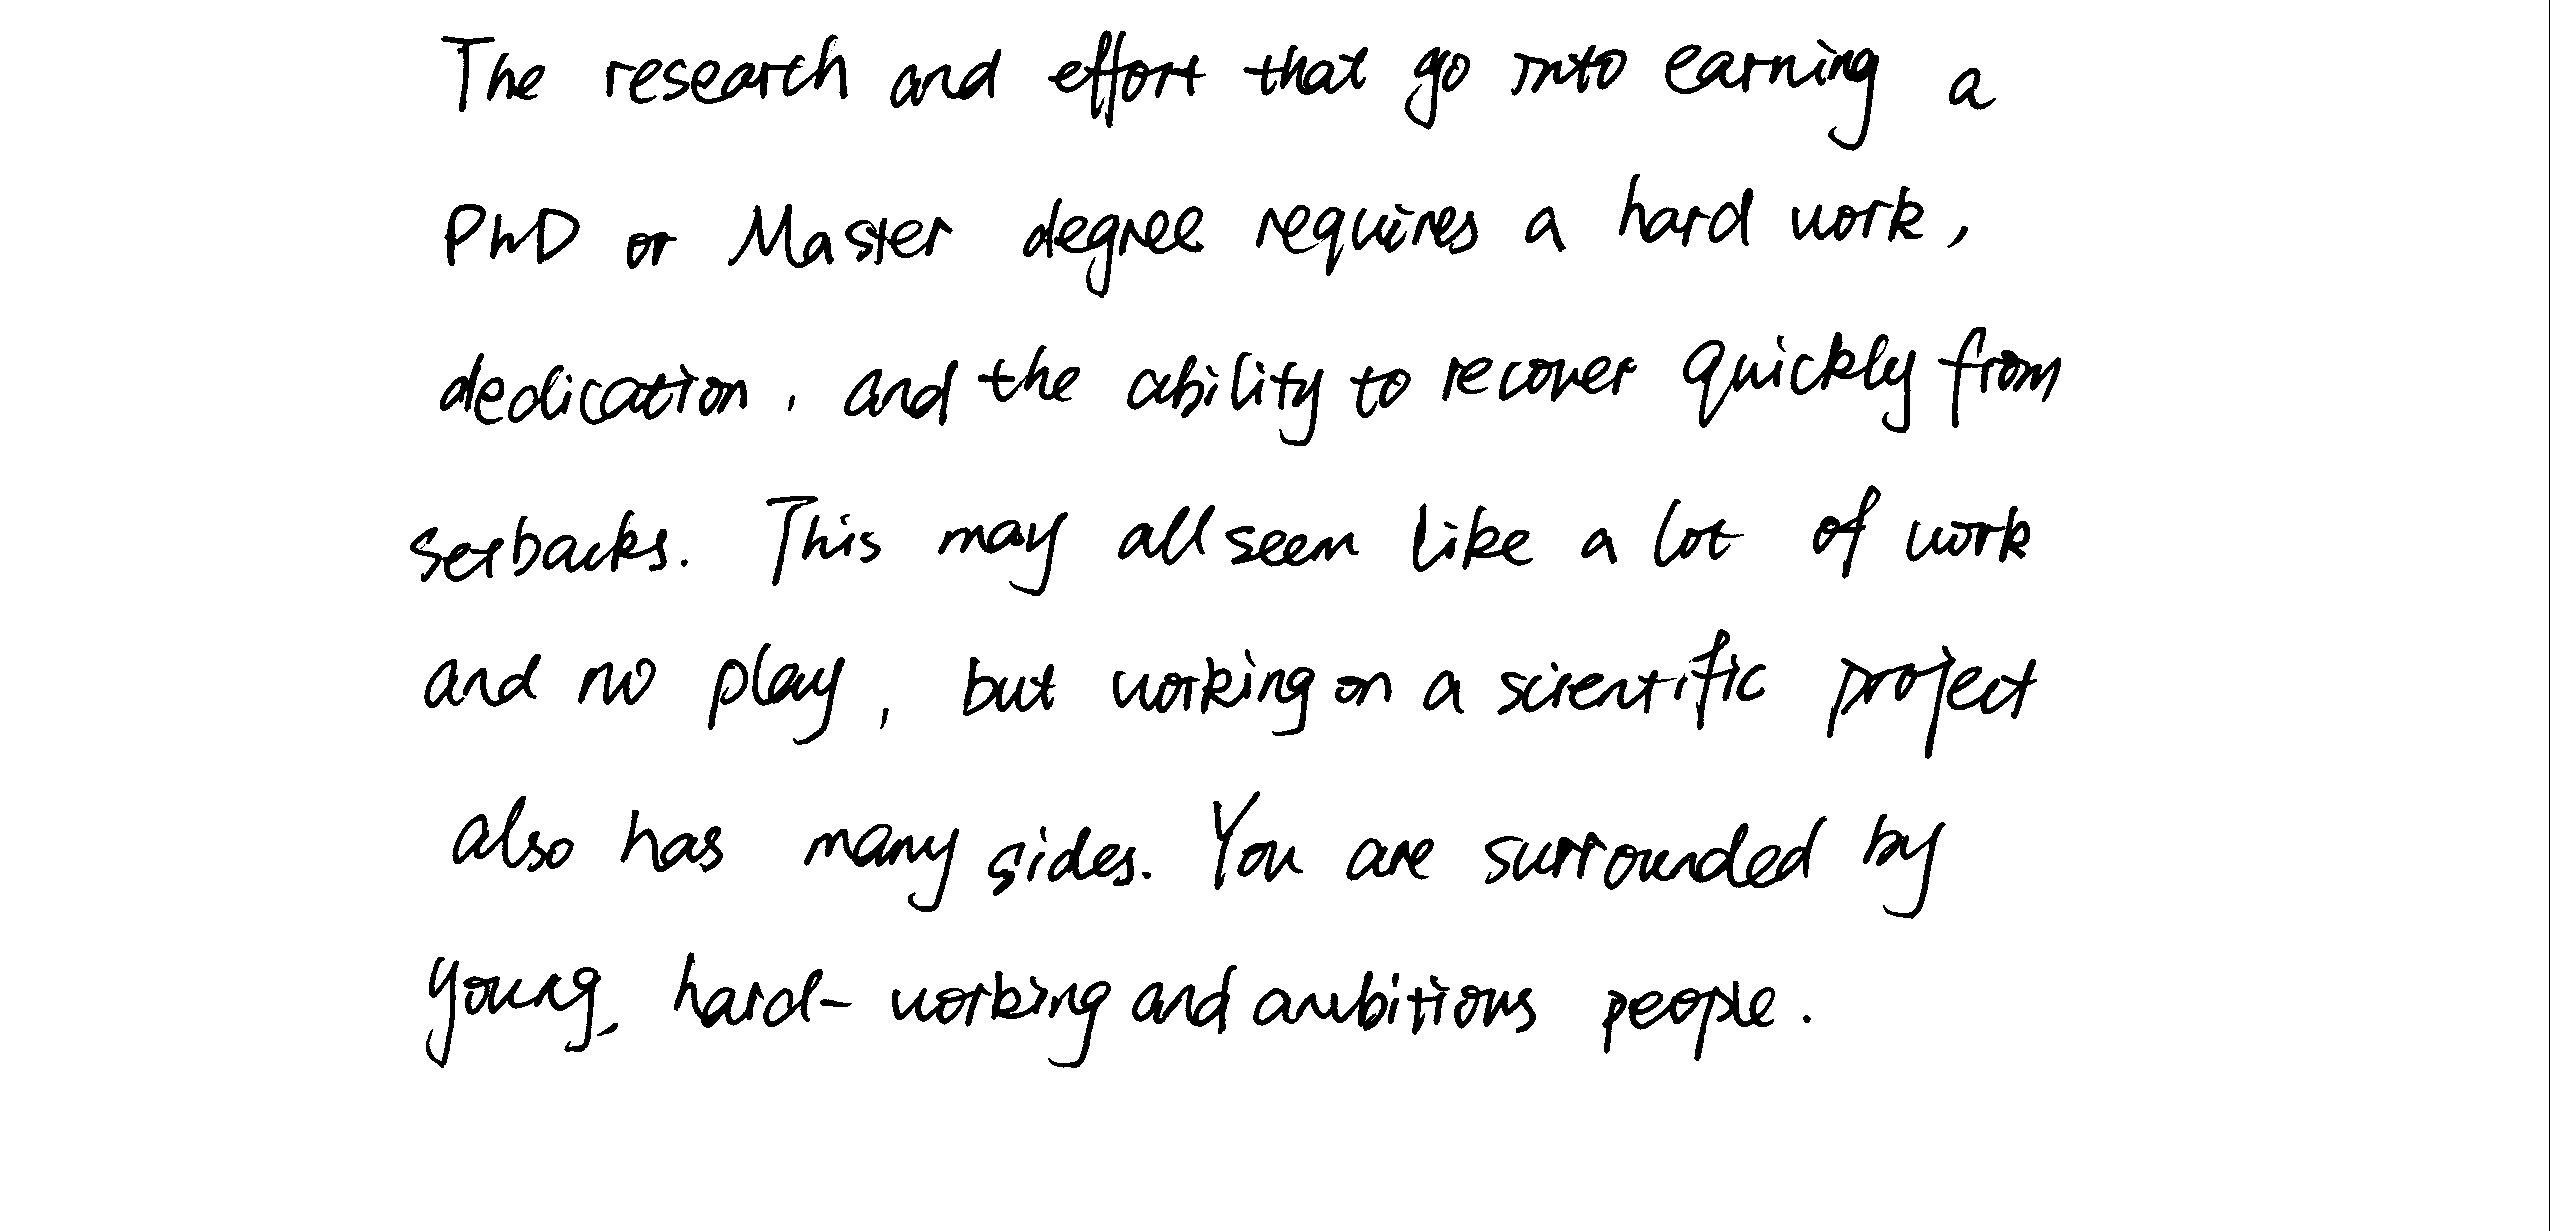 The research and effort that go into earning a
PhD or Master degree requires a hard work,
dedication, and the ability to recover quickly from
setbacks. This may all seem like a lot of work
and no play, but working on a scientific project
also has many sides. You are surrounded by
young, hard-working and ambitious people.